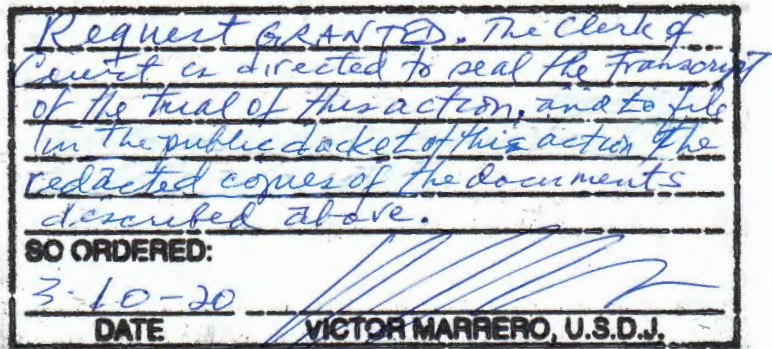 Request GRANTED. The Clerk of
Court is directed to seal the Transcript
of the trial of this action, and to file
in the public docket of this action the
redacted copies of the documents
described above.
SO ORDERED:
3-10-20
DATE VICTOR MARRERO, U.S.D.J.